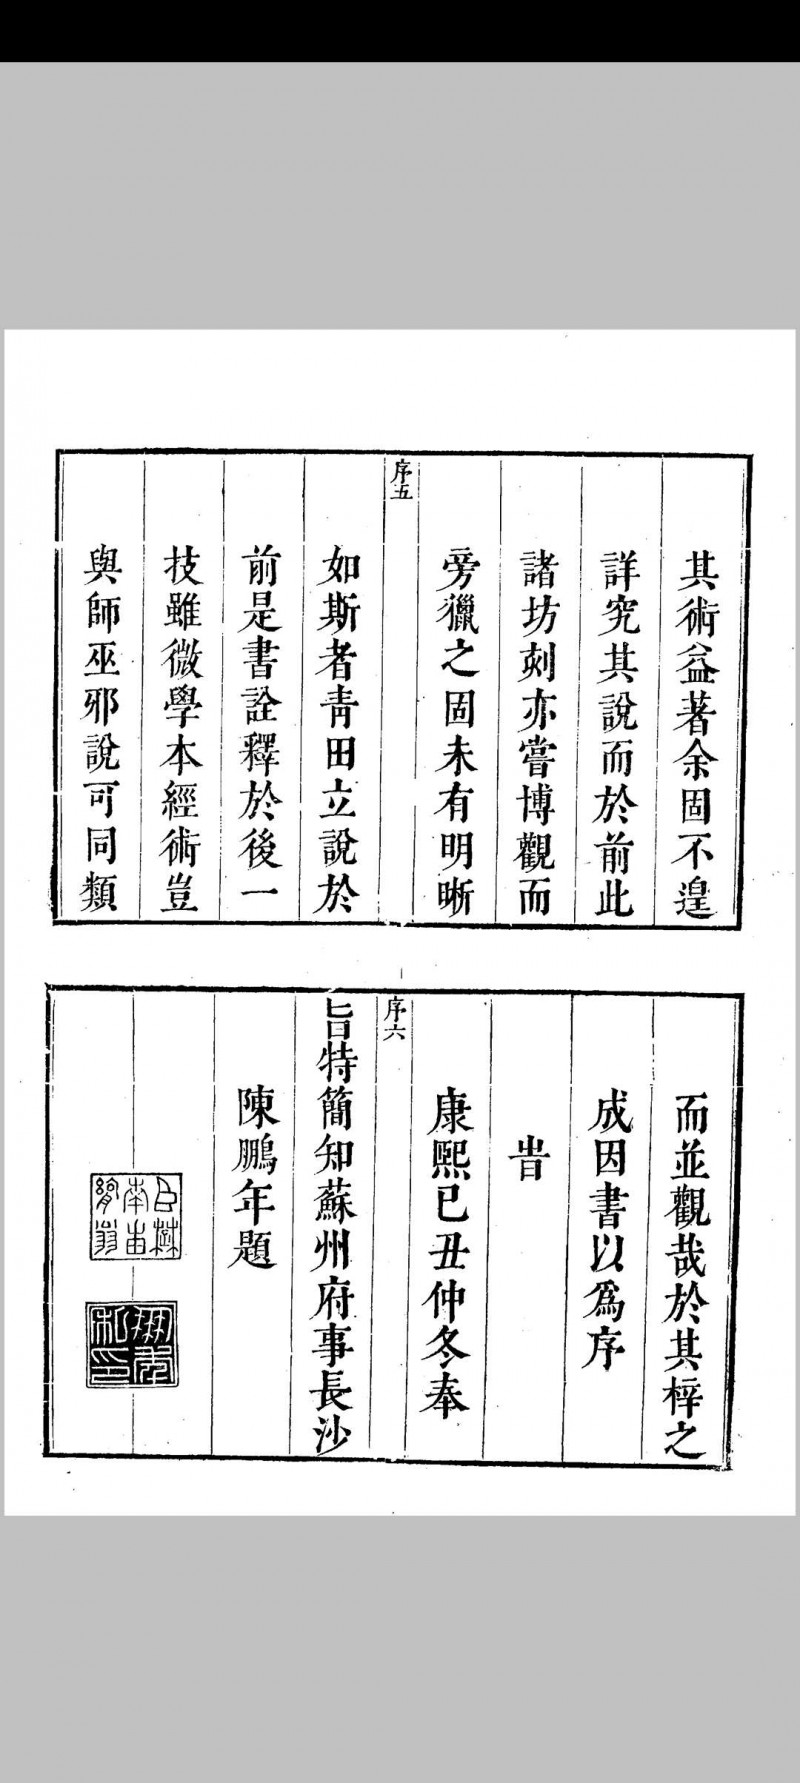 其術益著余固不遑
詳究其說而於前此
諸坊刻亦嘗博觀而
旁獵之固未有明晰
序五
如斯者靑田立說於
前是書詮釋於後一
技雖微學本經術豈
與師巫邪說可同類
而並觀哉於其梓之
成因書以爲序
旹
康熙已丑仲冬奉
序六
旨特簡知蘇州府事長沙
陳鵬年題